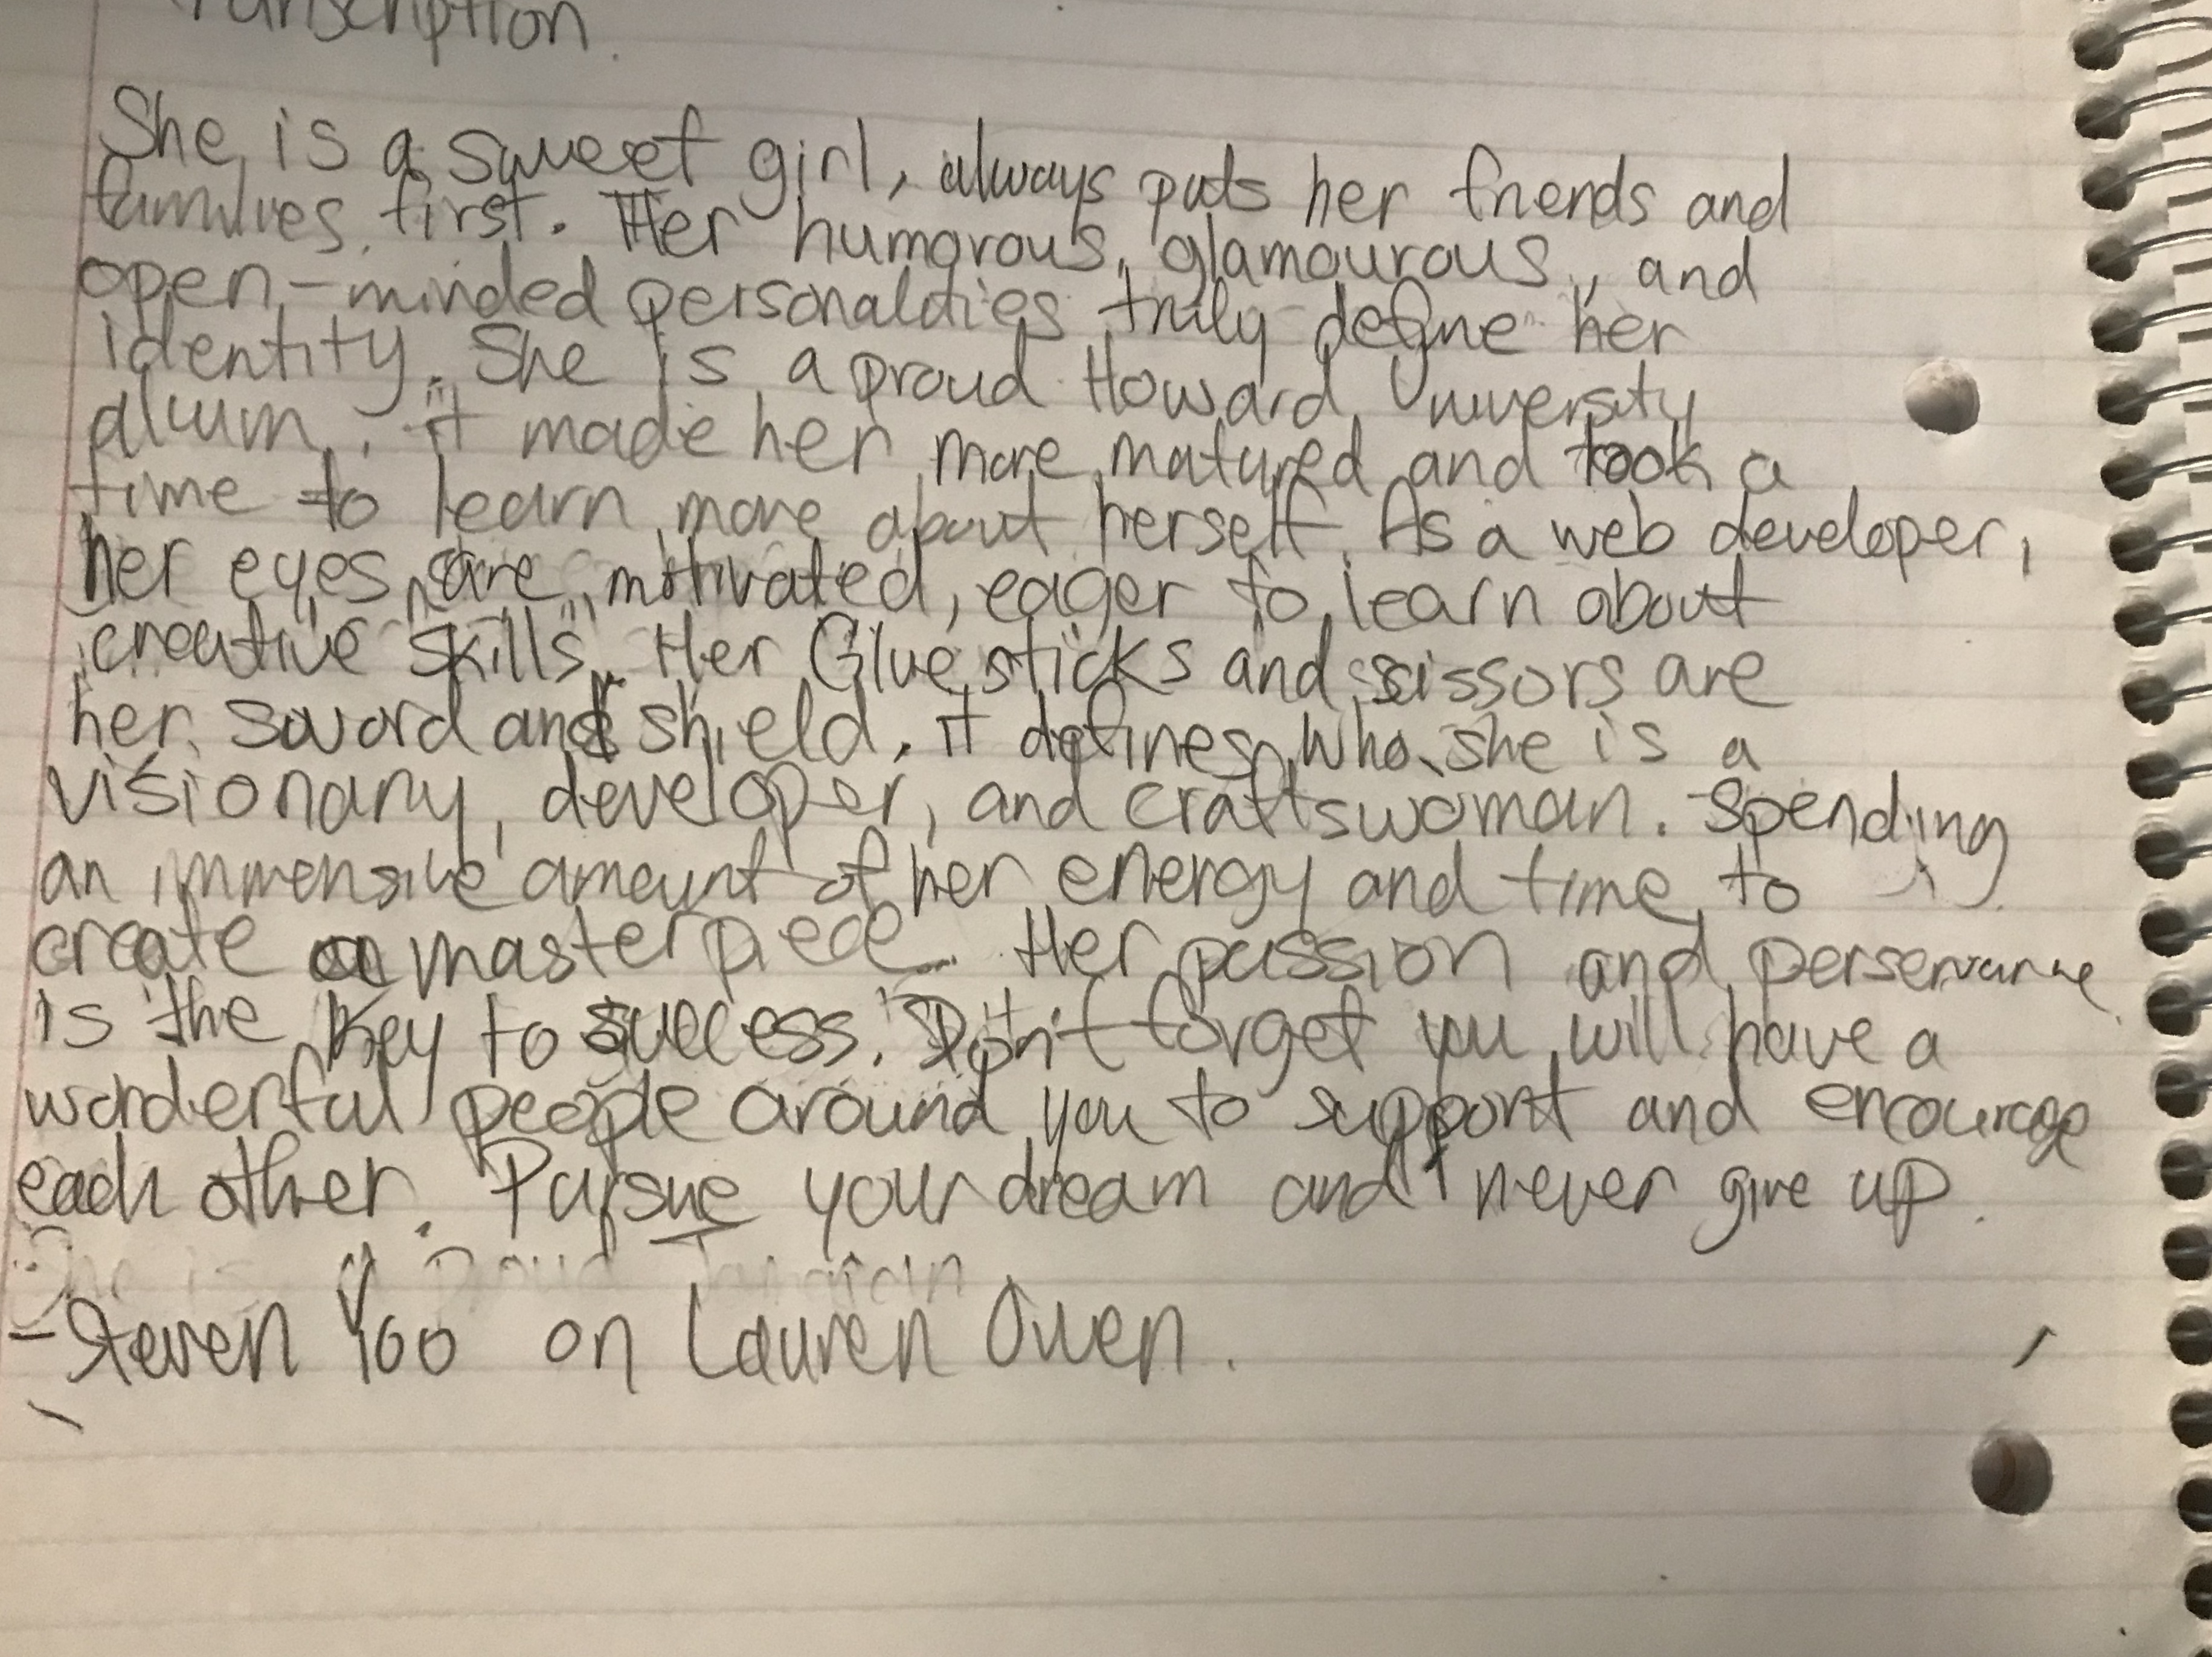 Transcription.
She is a sweet girl, always puts her friends and
families first. Her humorous, glamourous, and
open-minded personalities truly define her
identity. She is a proud Howard University
alum. it made her more matured and took a
time to learn more about herself. As a web developer,
her eyes are motivated, eager to learn about
creative skills. Her Glue sticks and scissors are
her sword and shield. it defines who she is a
visionary, developer, and craftswoman. Spending
an immensive amount of her energy and time to
create a masterpiece. Her passion and perservance
is the key to success. Don't forget you will have a
wonderful people around you to support and encourage
each other. Pursue your dream and never give up.
She is a proud
-Steven Yoo on Lauren Owen.